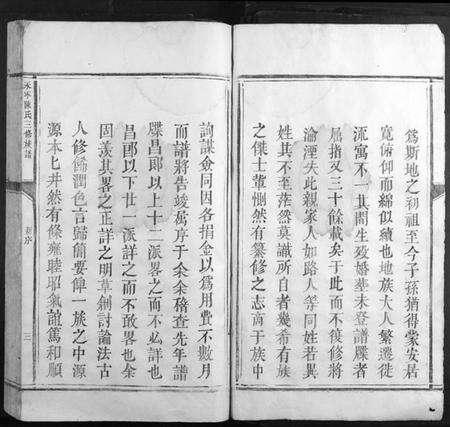 為斯地之初祖至今子孫猶得蒙安居
寬俯仰而綿似續也地族大人繁遷徙
流寓不一其間生歿婚葬未登譜牒者
屈指又三十餘載矣于此而不復修將
淪湮失此親家人如路人等同姓若異
姓其不至茫然莫識所自者幾希有族
之傑士輩惻然有纂修之志商于族中
詢謀僉同因各捐金以為用費不數月
而譜將告竣屬序于余余稽查先年譜
牒昌郎以上十二派畧之而不必詳也
昌郎以下廿一派詳之而不敢畧也余
因羨其畧之正詳之明草創討論法古
人修飾潤色言歸簡要俾一族之中源
源本本井然有條雍睦昭氣誼篤和順
陳氏三修族譜
序
三